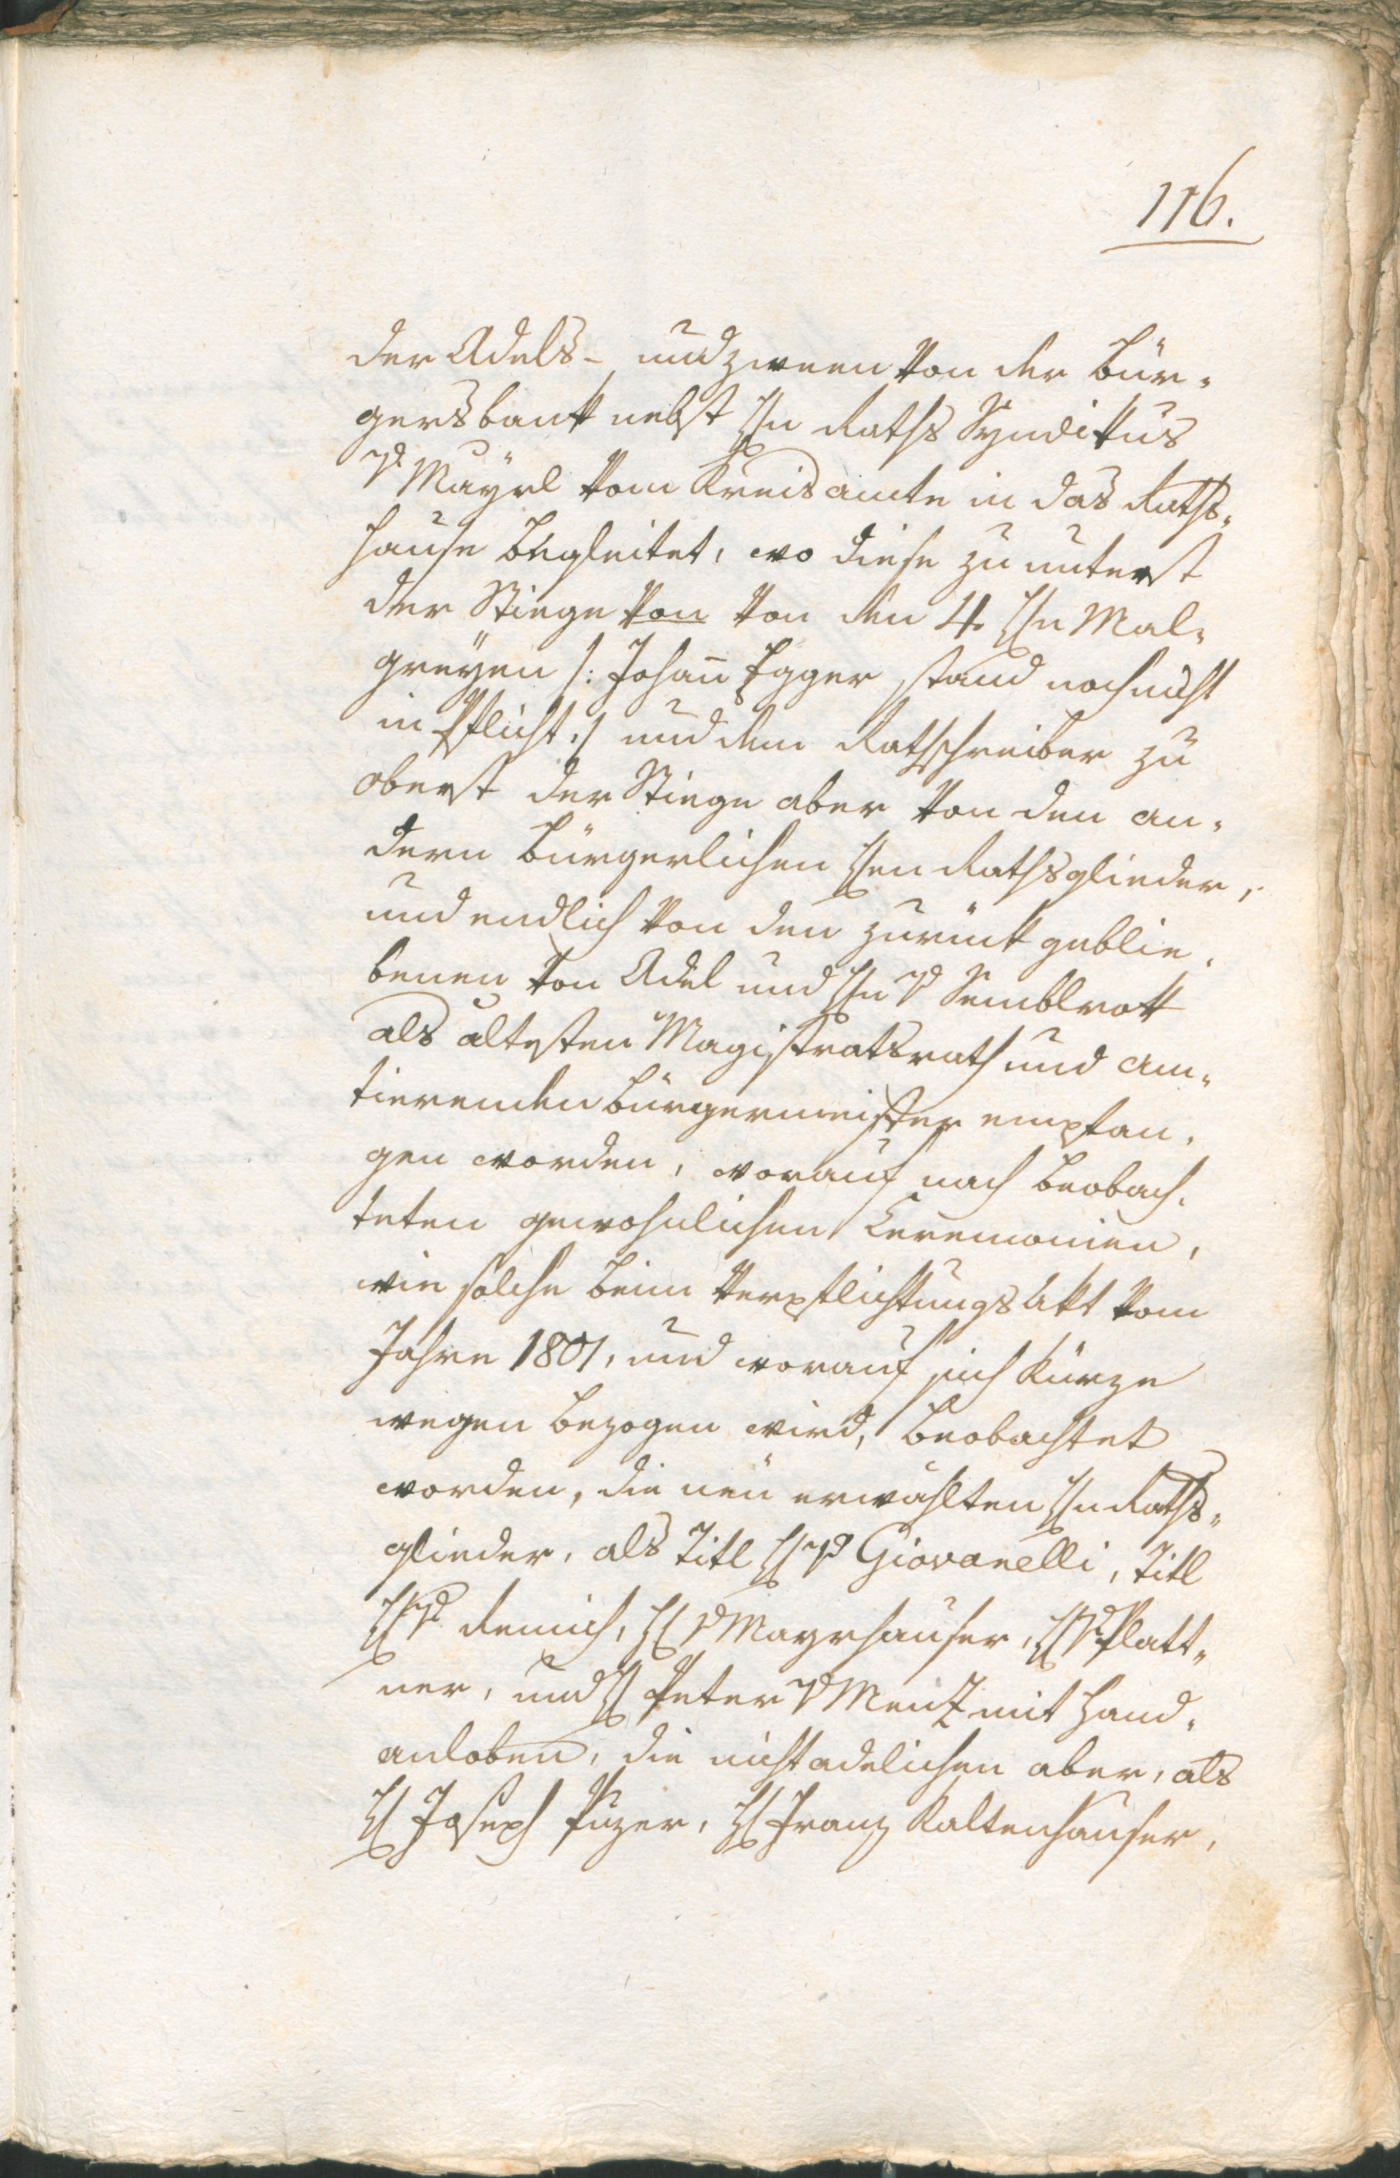 116.
der Adels-, und zween von der Bür¬
gersbank nebst Hn Raths Syndikus
v Mayrl vom Kreisamte in das Raths¬
hause begleitet, wo diese zu unterst
der Stiege von von den 4. Hn Mal¬
greyen /: Johann Egger stand noch nicht
in Pflicht :/ und dem Rathschreiber zu
oberst der Stiege aber von den an¬
dern bürgerlichen Hen Rathsglieder,
und endlich von den zurück geblie¬
benen von Adel und Hn v Semblrock
als ältesten Magistratsrath und am¬
tierenden Bürgermeister empfan¬
gen worden, worauf nach beobach¬
teten gewohnlichen Ceremonien,
wie solche beim Verpflichtungs Akt vom
Jahre 1801, und worauf sich Kürze
wegen bezogen wird, beobachtet
worden, die neu erwählten Hn Raths¬
glieder, als Titl H v Giovanelli, Titl
H v Remich, H v Mayrhauser, H v Platt¬
ner, und H Peter v Menz mit Hand¬
anloben, die nicht adelichen aber, als
H Joseph Puzer, H Franz Kaltenhauser,